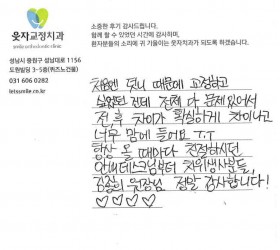 웃자교정치과
smile orthodontic clinic
소중한 후기 감사드립니다.
함께 할 수 있었던 시간에 감사하며,
환자분들의 소리에 귀 기울이는 웃자치과가 되도록 하겠습니다.
성남시 중원구 성남대로 1156
도원빌딩 3~5층(퀴즈노건물)
031 606 0282
letssmile.co.kr
처음엔 덧니 때문에 교정하고
싶었던 건데 전체 다 문제 있어서
전, 후 차이가 확실하게 차이나고
너무 맘에 들어요 T.T
항상 올 때마다 친절하시던
안내데스크님부터 치위생사분들,
원장님 정말 감사합니다!
♡♡♡♡